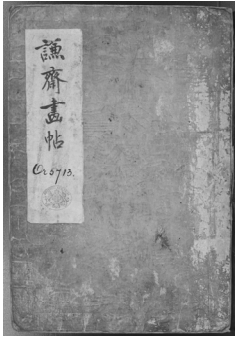 謙齋畫帖
Or 6713.